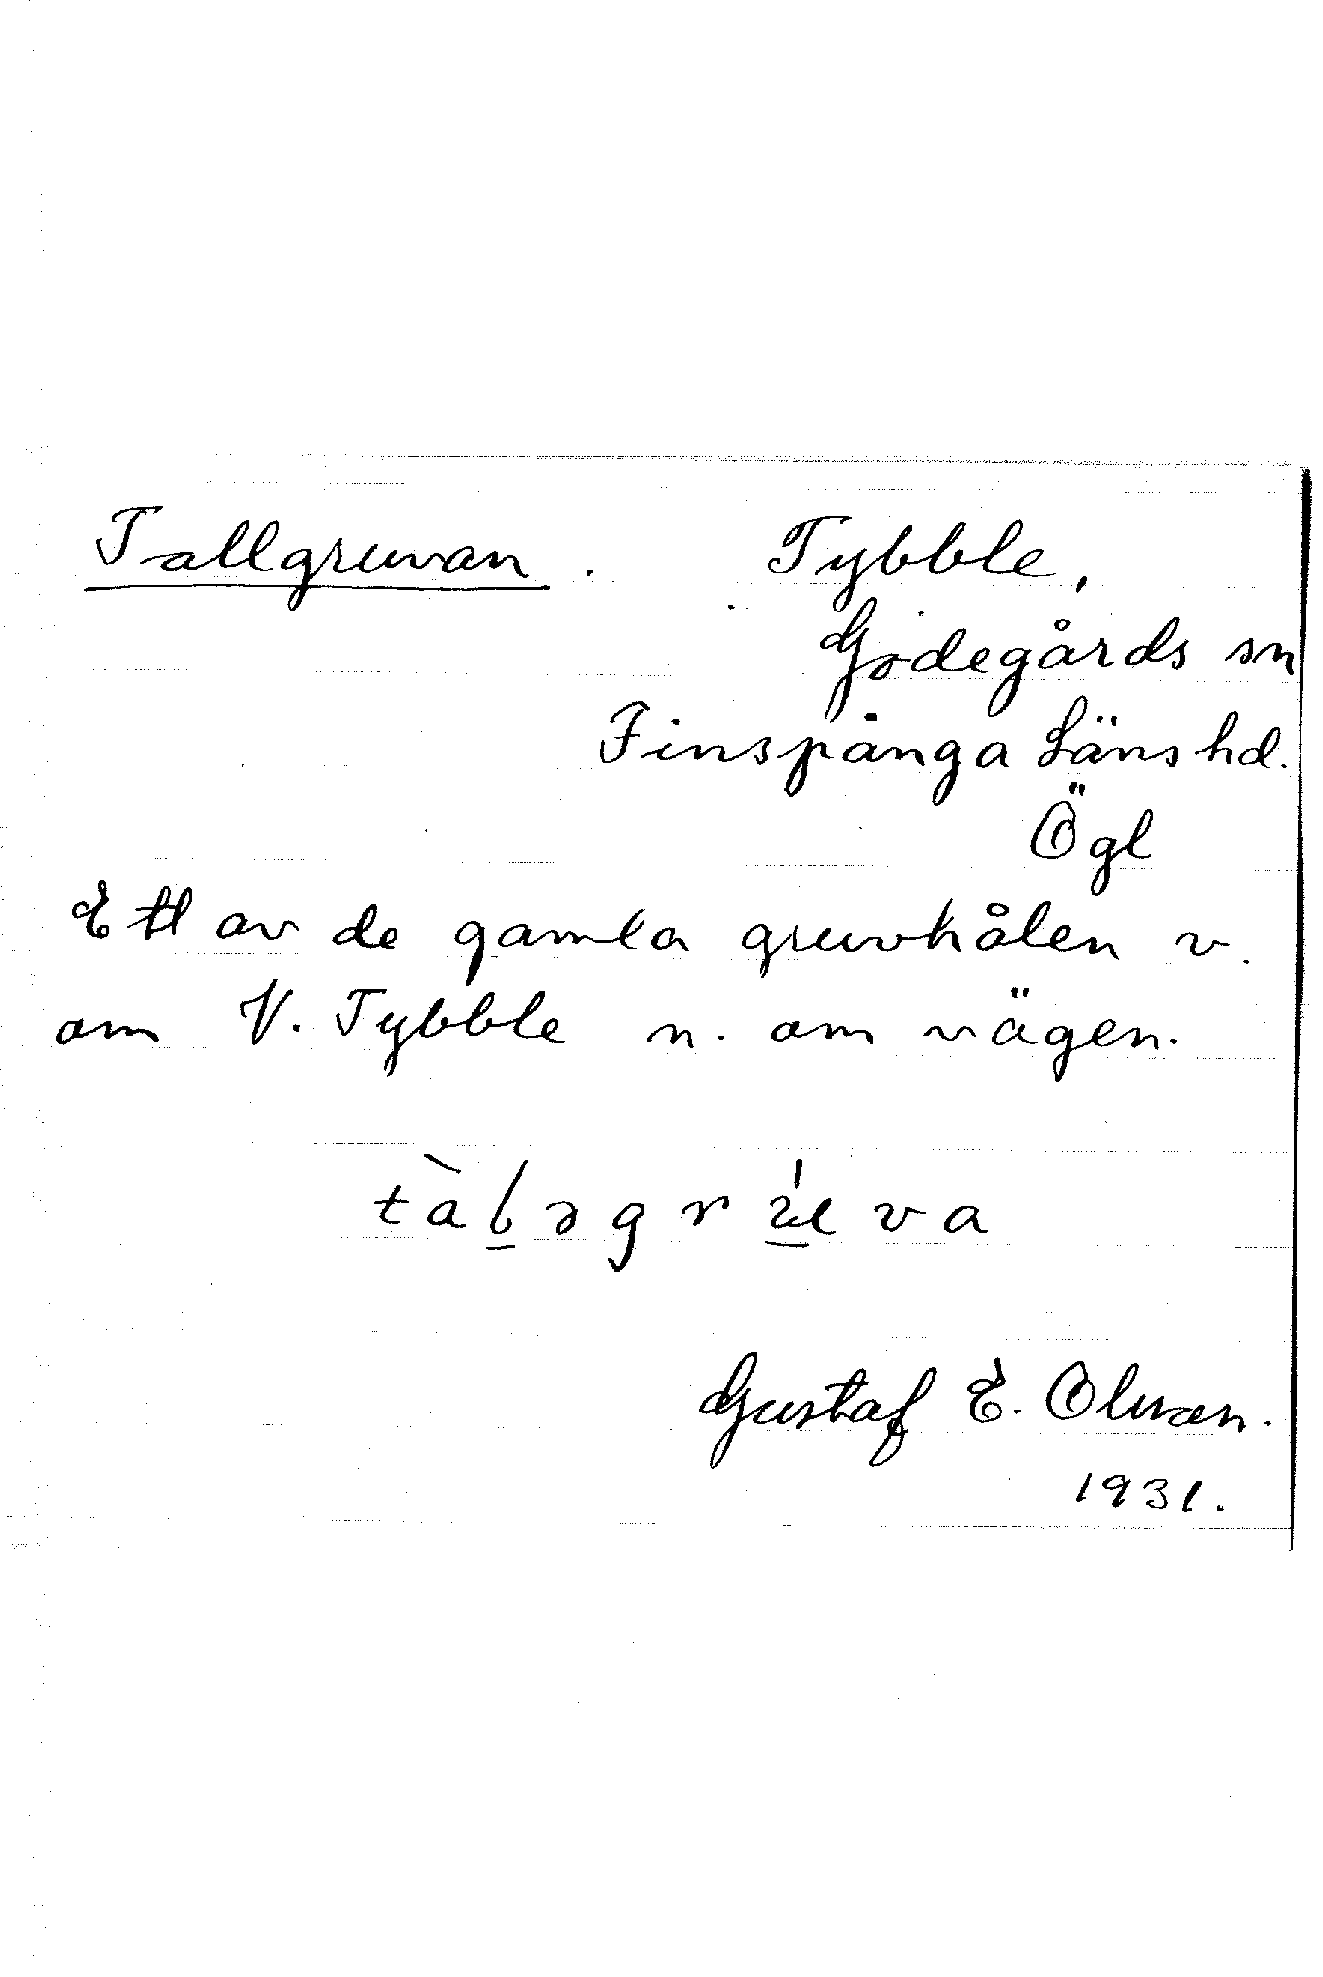 Tallgruvan. Tybble,
Godegårds sn
Finspånga Läns hd.
Ögl
Ett av de gamla gruvhålen v.
om V. Tybble n. om vägen.
Gustaf E. Olman.
1931.